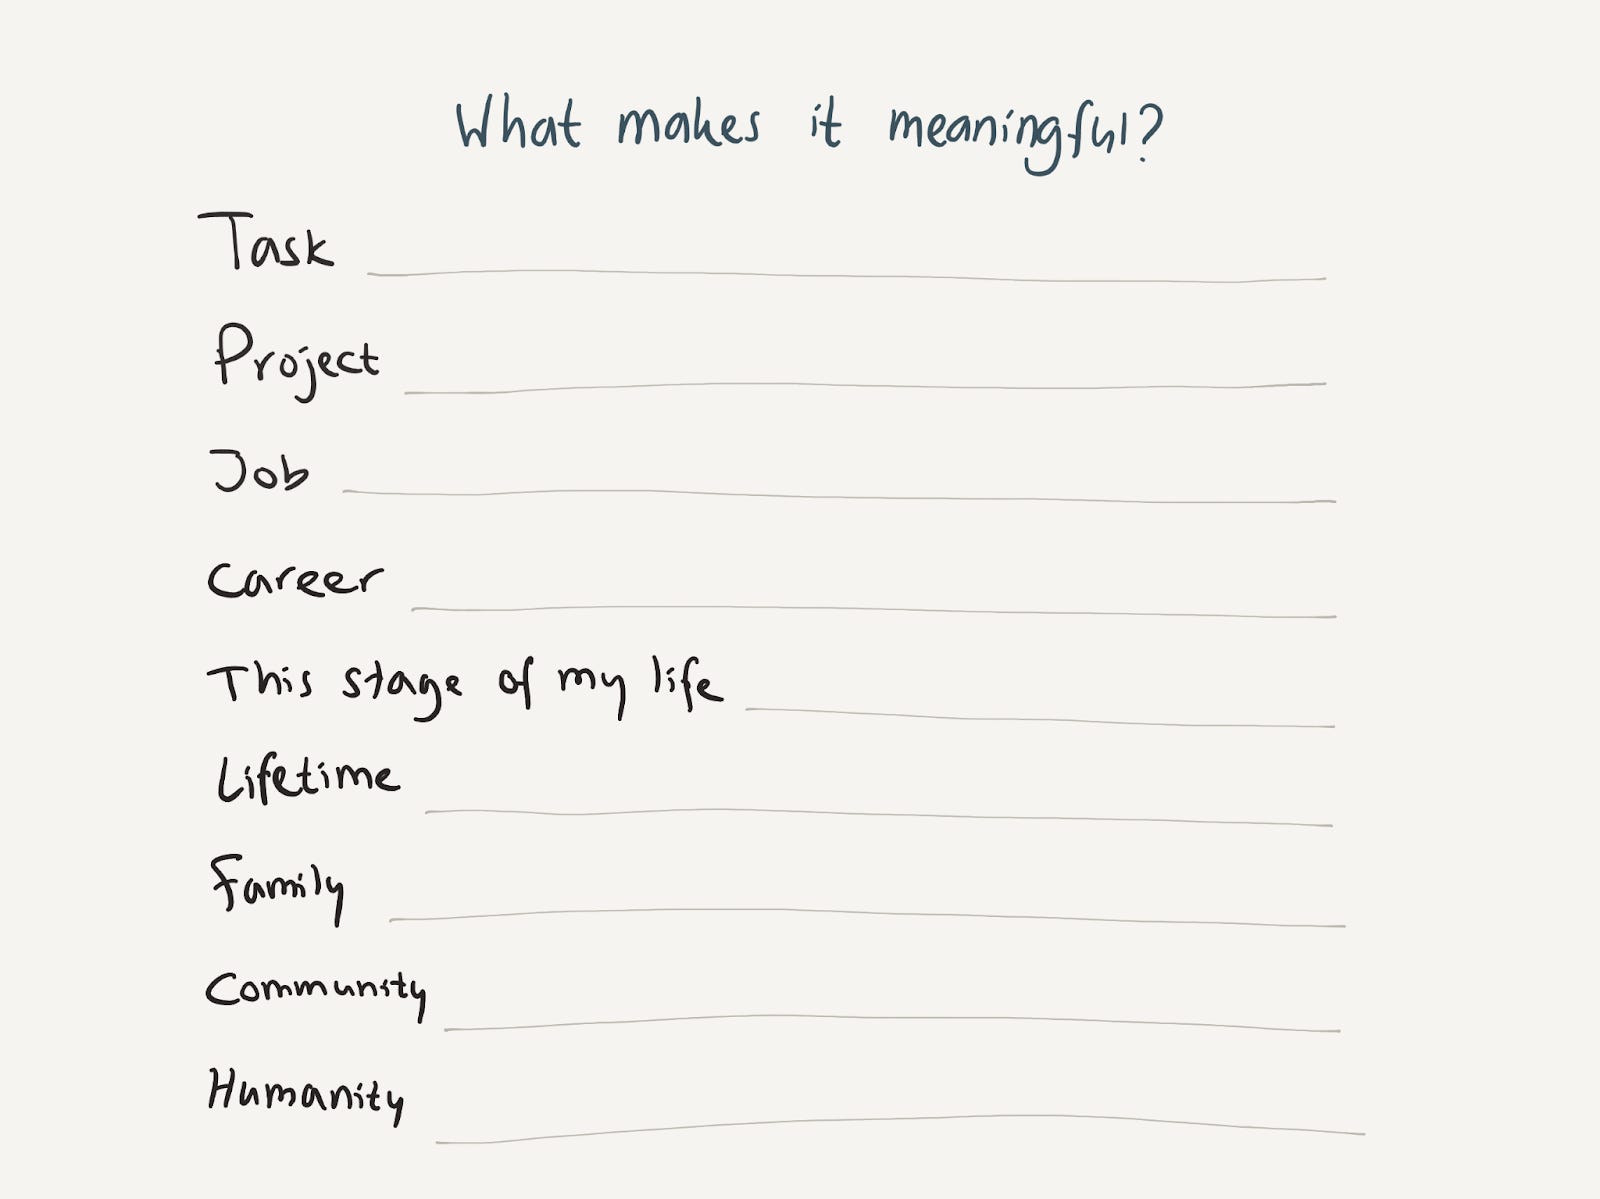 What makes it meaningful?
Task
Project
Job
Career
This stage of my life
Lifetime
Family
Community
Humanity